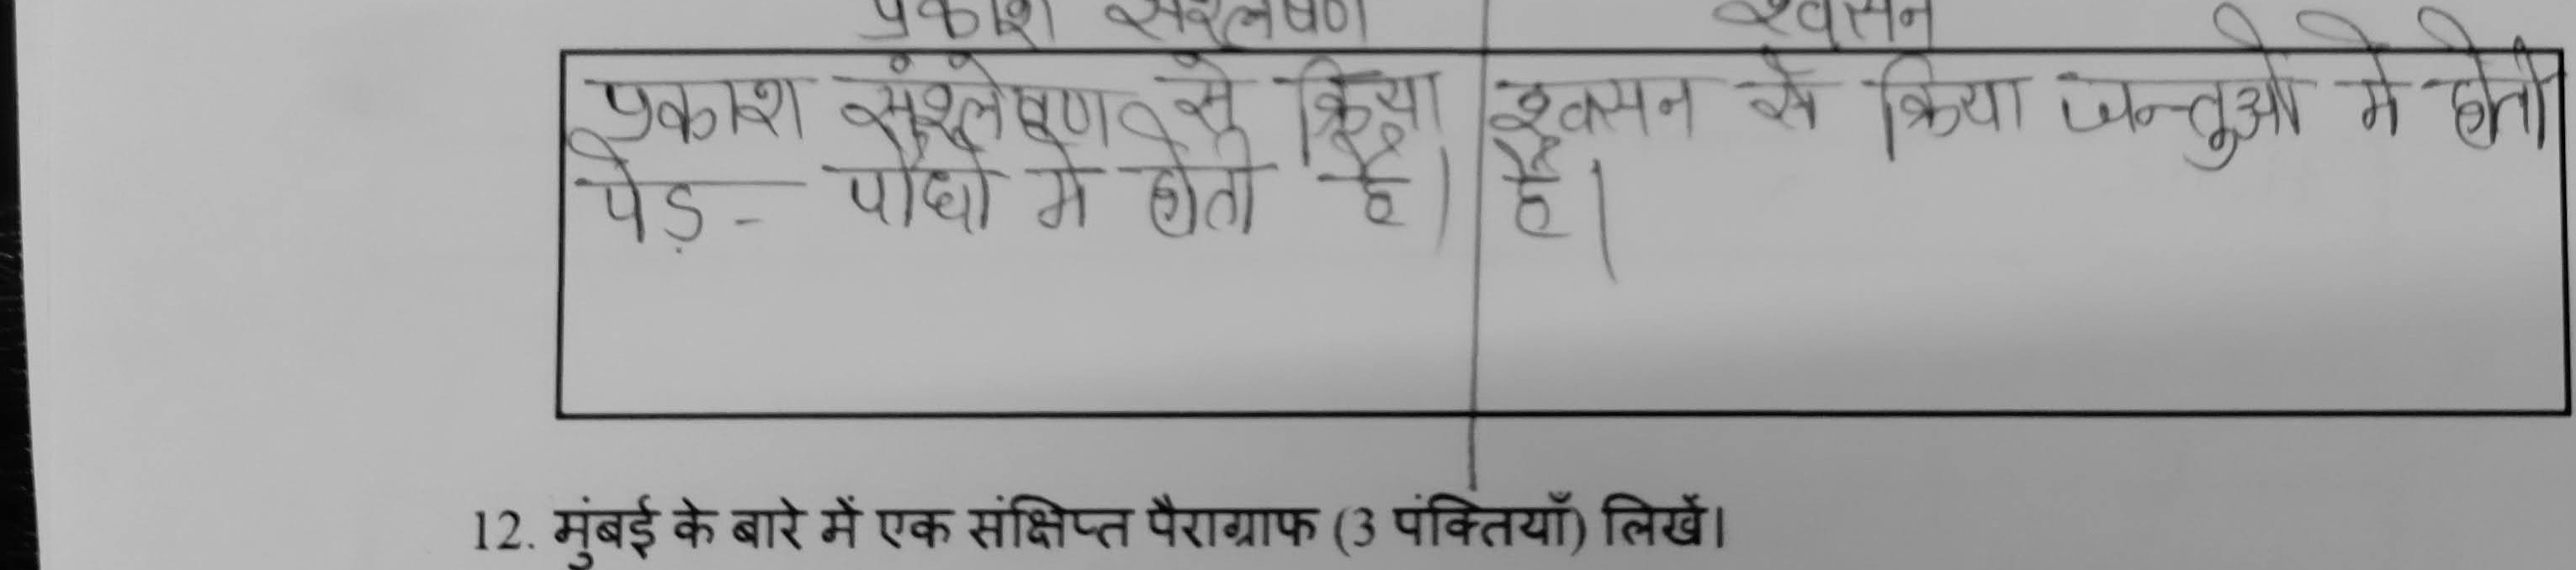 प्रकाश संश्लेषण
श्वसन
प्रकाश संश्लेषण से क्रिया
पेड़ - पौधो मे होती है।
श्वसन से क्रिया जन्तुओं मे होती
है।
12. मुंबई के बारे में एक संक्षिप्त पैराग्राफ (3 पंक्तियाँ) लिखें।